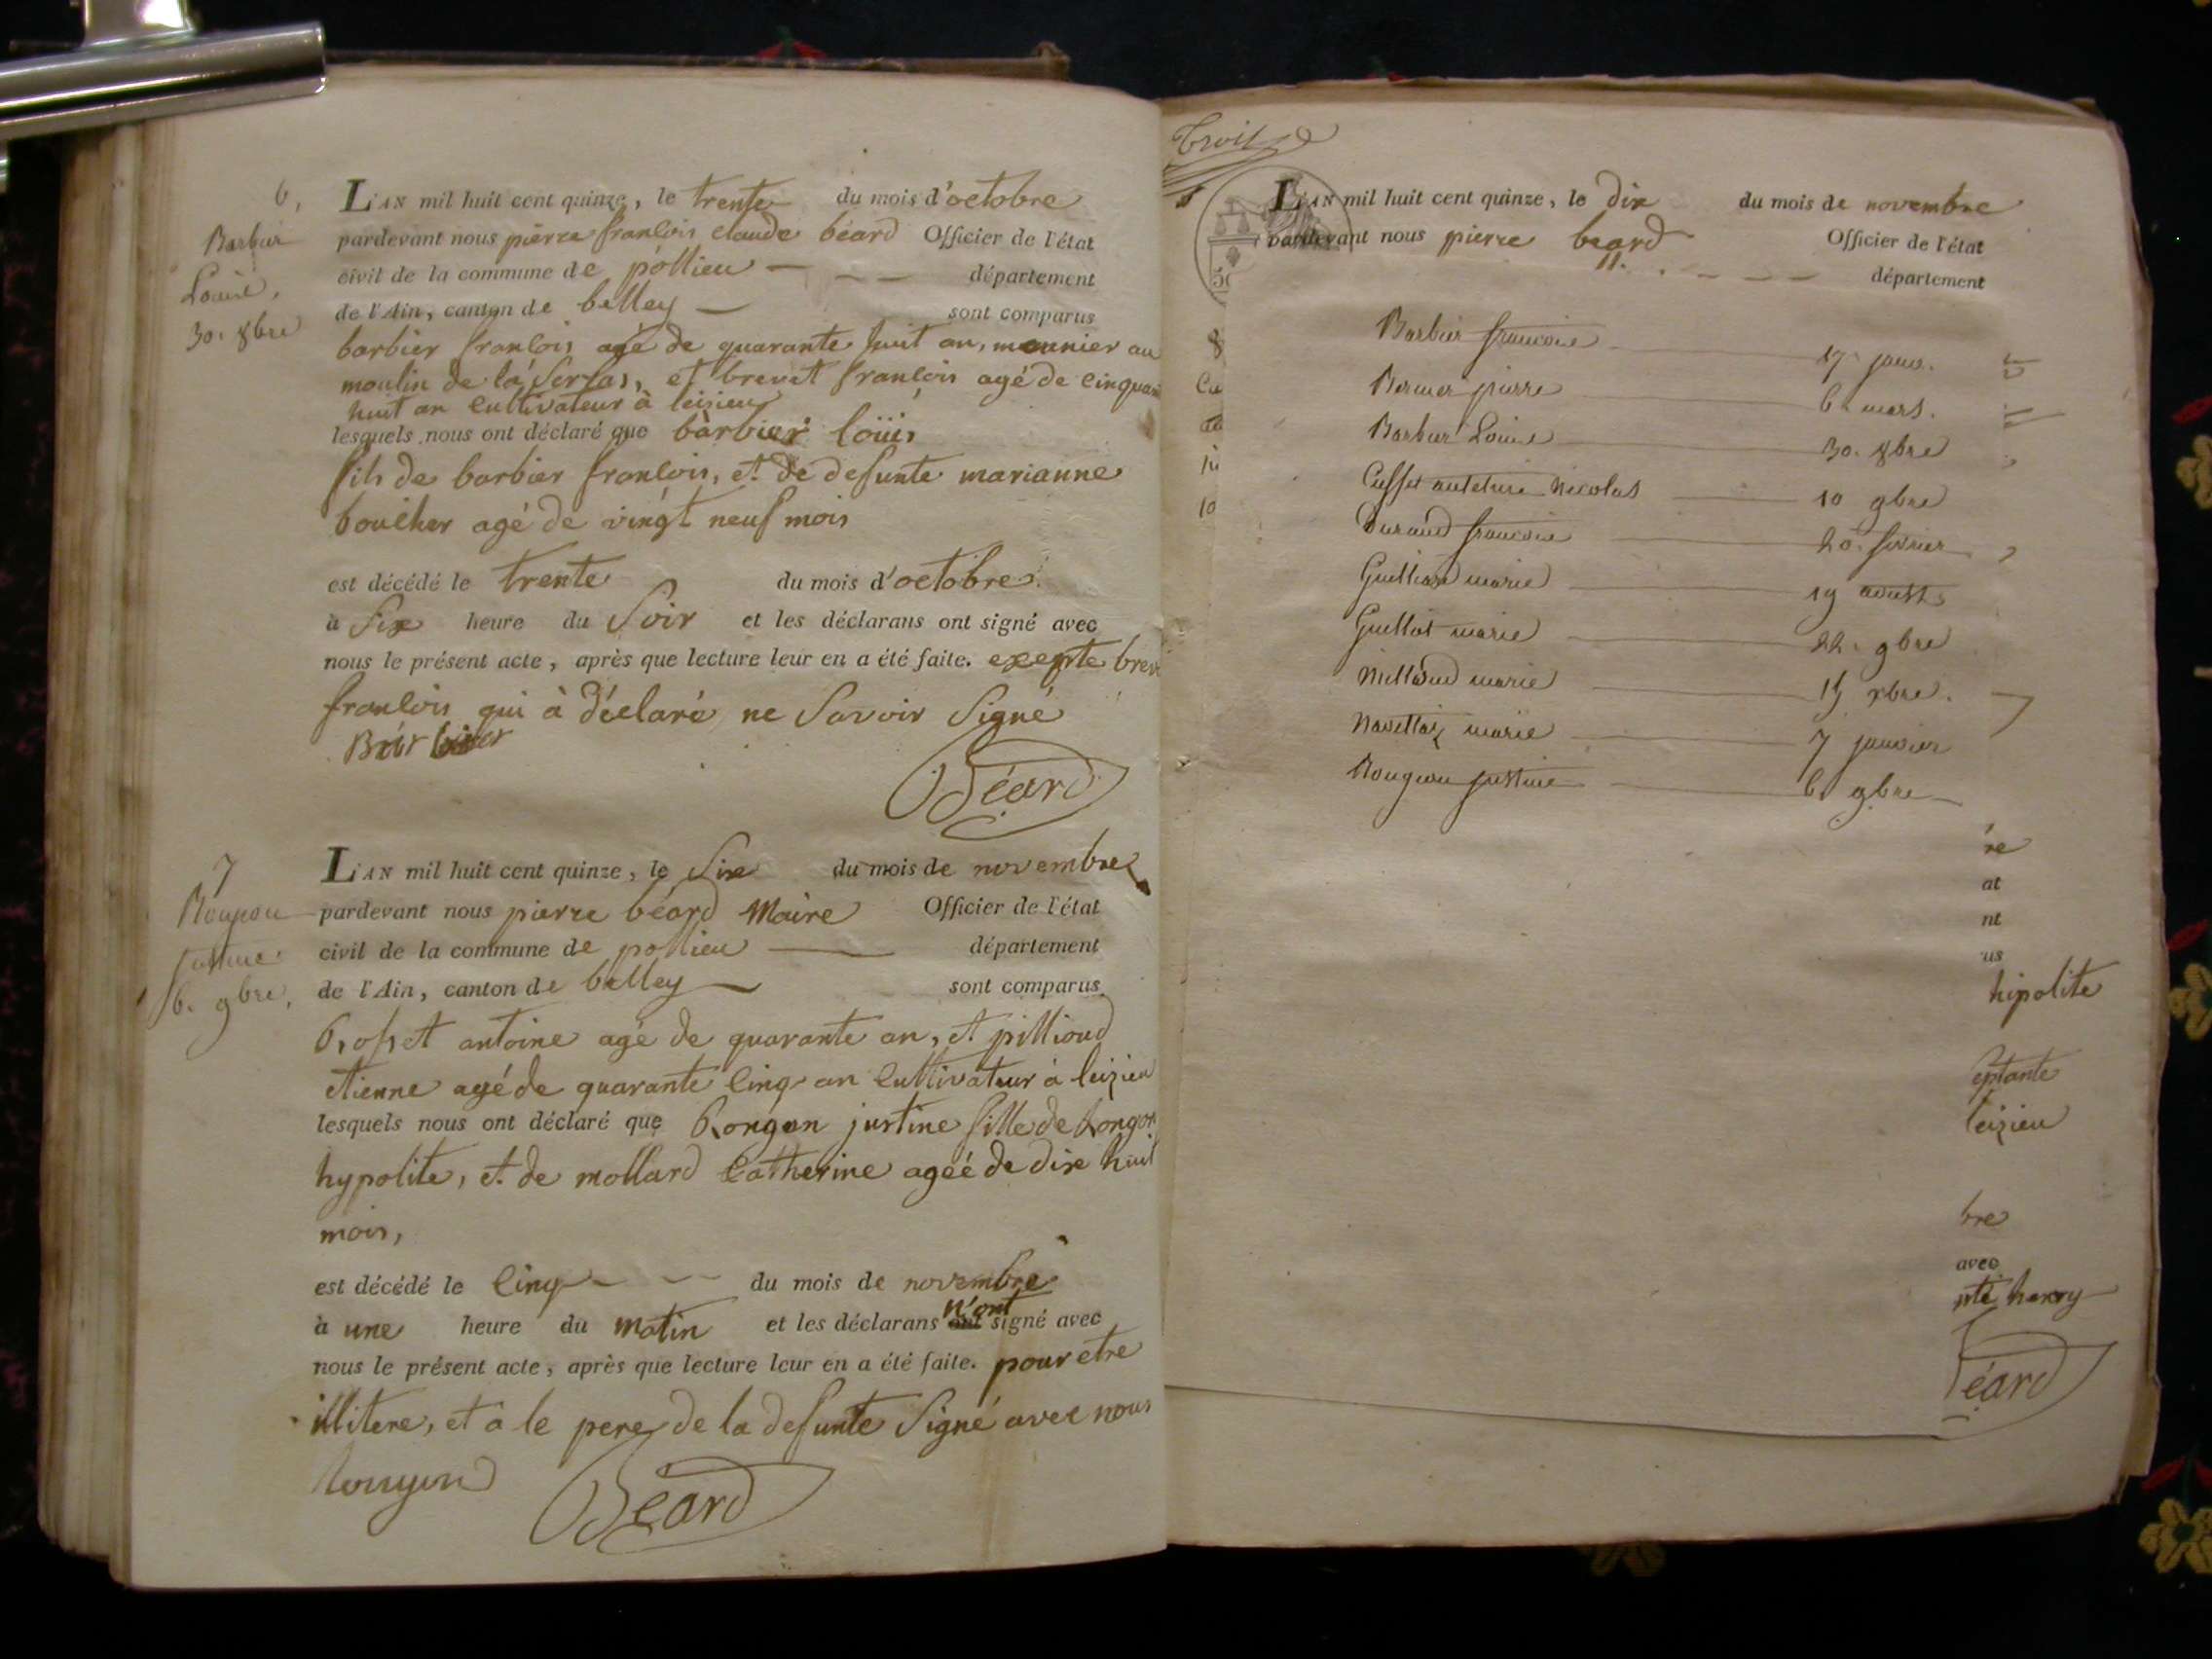 6,
Barbier
Louis,
30. 8bre
L'AN mil huit cent quinze, le trente du mois d'octobre
pardevant nous pierre francois claude béard Officier de l'état
civil de la commune de pollieu — — — département
de l'Ain, canton de belley — sont comparus
barbier francois agé de quarante huit an, meunier au
moulin de la serfas, et brevet francois agé de cinquan
huit an cultivateur à leizieu
lesquels nous ont déclaré que barbier loüis
fils de barbier francois, et de defunte marianne
boucher agé de vingt neuf mois
est décédé le trente du mois d'octobre
à six heure du soir et les déclarans ont signé avec
nous le présent acte, après que lecture leur en a été faite. exepte brev
francois qui à déclaré ne savoir signé
Béard
7
Rougeon
justine
6. 9bre,
L'AN mil huit cent quinze, le six du mois de novembre
pardevant nous pierre béard Maire Officier de l'état
civil de la commune de pollieu — département
de l'Ain, canton de belley — sont comparus
antoine agé de quarante an, et pillioud
etienne agé de quarante cinq an cultivateur à leizieu
lesquels nous ont déclaré que Rongon justine fille de Rongon
hypolite, et de mollard catherine ageé de dix huit
mois,
est décédé le cinq — — du mois de novembre
à une heure du matin et les déclarans n'ont signé avec
nous le présent acte, après que lecture leur en a été faite. pour etre
illitere, et à le pere de la defunte signé avec nous
Béard
L'AN mil huit cent quinze, le dix du mois de novembre
pardevant nous pierre beard Officier de l'état
— — — département
Barbier francoise — 17 janv.
pierre — 6 mars.
Barbier Louis — 30. 8bre
Nicolas — 10 9bre
Durand francoise — 20. fevrier
marie — 19 aoust
Guillot marie — 22. 9bre
marie — 15 xbre.
marie — 7 janvier
Rougeon justine — 6. 9bre
8
10
re
at
nt
us
hipolite
eptante
leizieu
bre
avec
nte henry
Béard